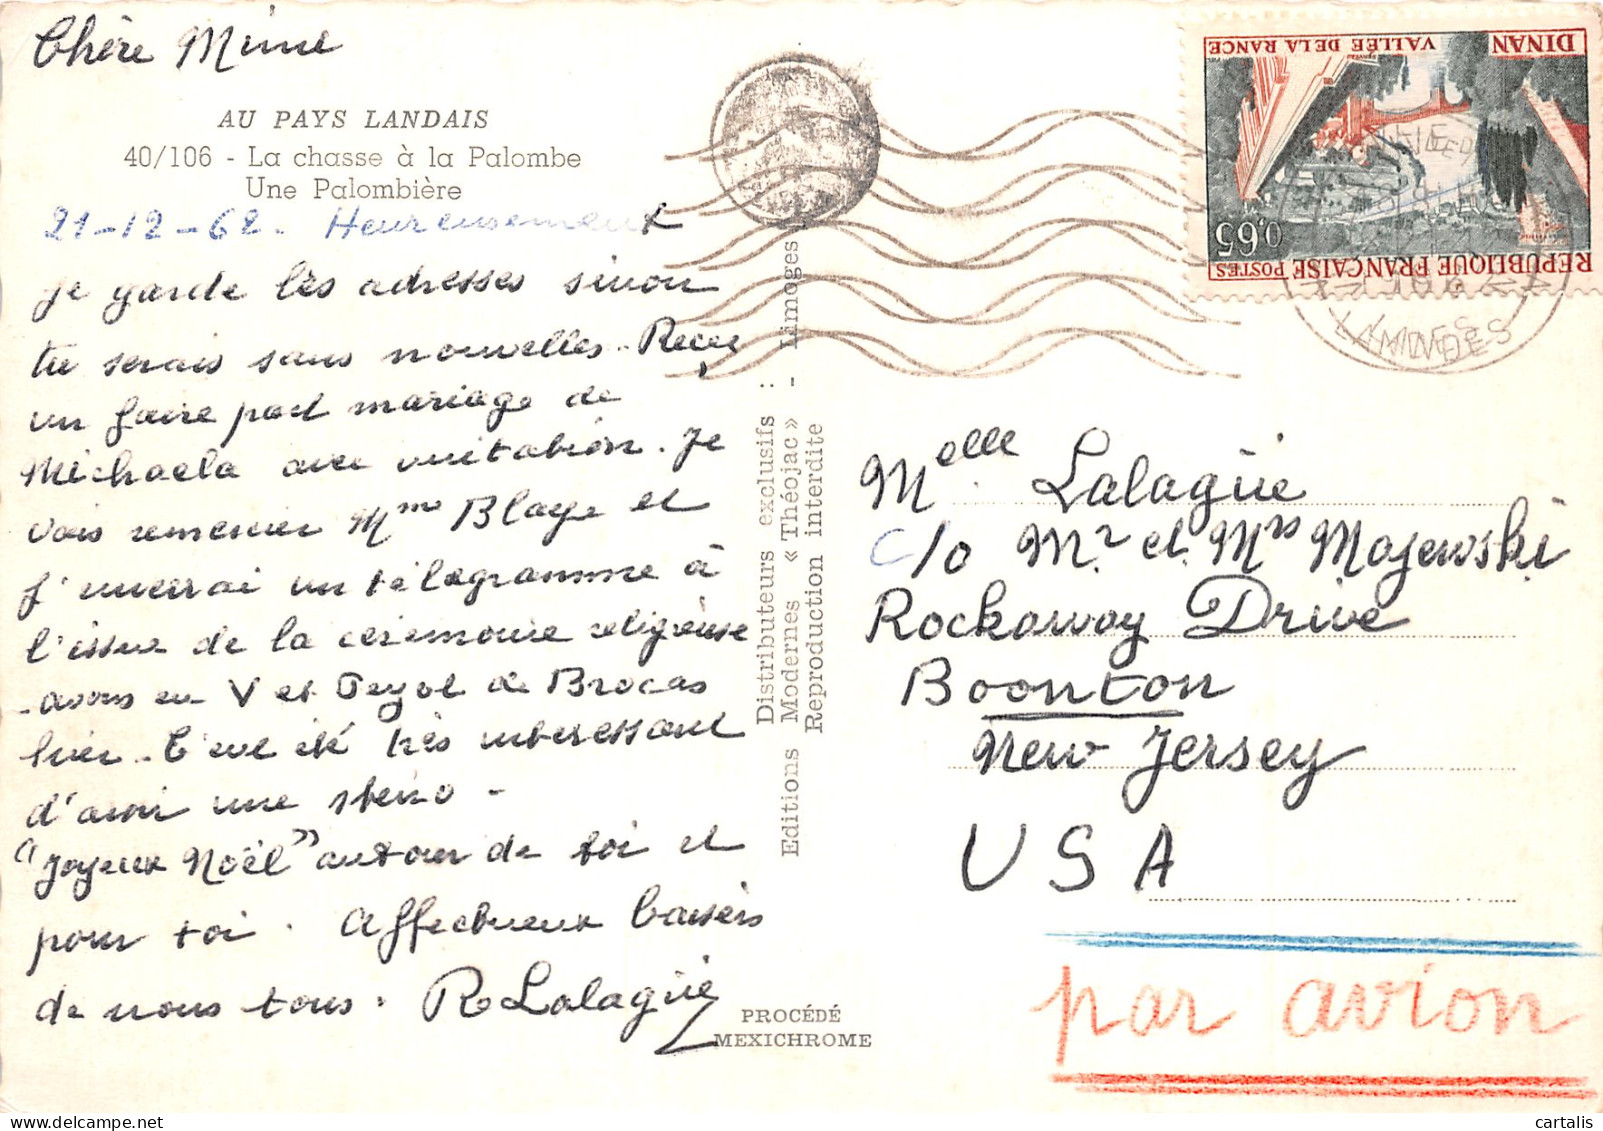 Chère Mime
AU PAYS LANDAIS
40/106 - La chasse à la Palombe
Une Palombière
21-12-62. Heureusement
je garde les adresses sinon
tu serais sans nouvelles. Reçu
un faire part mariage de
Michaela avec invitation. Je
vais remercier Mme Blaye et
j'enverrai un télégramme à
l'issue de la cérémonie religieuse
avons eu V et Peyol de Brocas
hier. C'eut été très intéressant
d'avoir une sténo -
"Joyeux Noël" autour de toi et
pour toi. Affectueux baisers
de nous tous. R Lalagüe
Distributeurs exclusifs :
Editions Modernes « Théojac » - Limoges
Reproduction interdite
PROCÉDÉ
MEXICHROME
DINAN VALLÉE DE LA RANCE
0,65
REPUBLIQUE FRANÇAISE POSTES
LANDES
Melle Lalagüe
c/o Mr et Mrs Majewski
Rockaway Drive
Boonton
New Jersey
U S A
par avion
cartalis